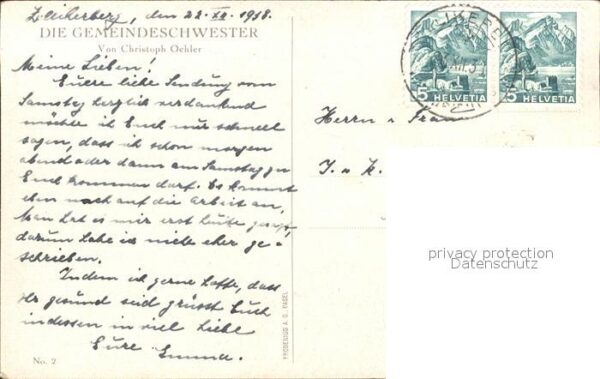 den 22. XII. 1938.
DIE GEMEINDESCHWESTER
Von Christoph Oehler
Meine Lieben!
Euere liebe Sendung vom
Samstag herzlich verdankend
möchte ich Euch nur schnell
sagen, dass ich schon morgen
abend oder dann am Samstag zu
Euch kommen darf. Es kommt
eben noch auf die Arbeit an,
Man hat es mir erst heute gesagt,
darum habe ich nicht eher ge-
schrieben.
Indem ich gerne hoffe, dass
Ihr gesund seid grüsst Euch
indessen in viel Liebe
Eure Emma.
No. 2
FROBENIUS A. G. BASEL
5 HELVETIA
5 HELVETIA
Herrn u Frau
J. u K.
privacy protection
Datenschutz